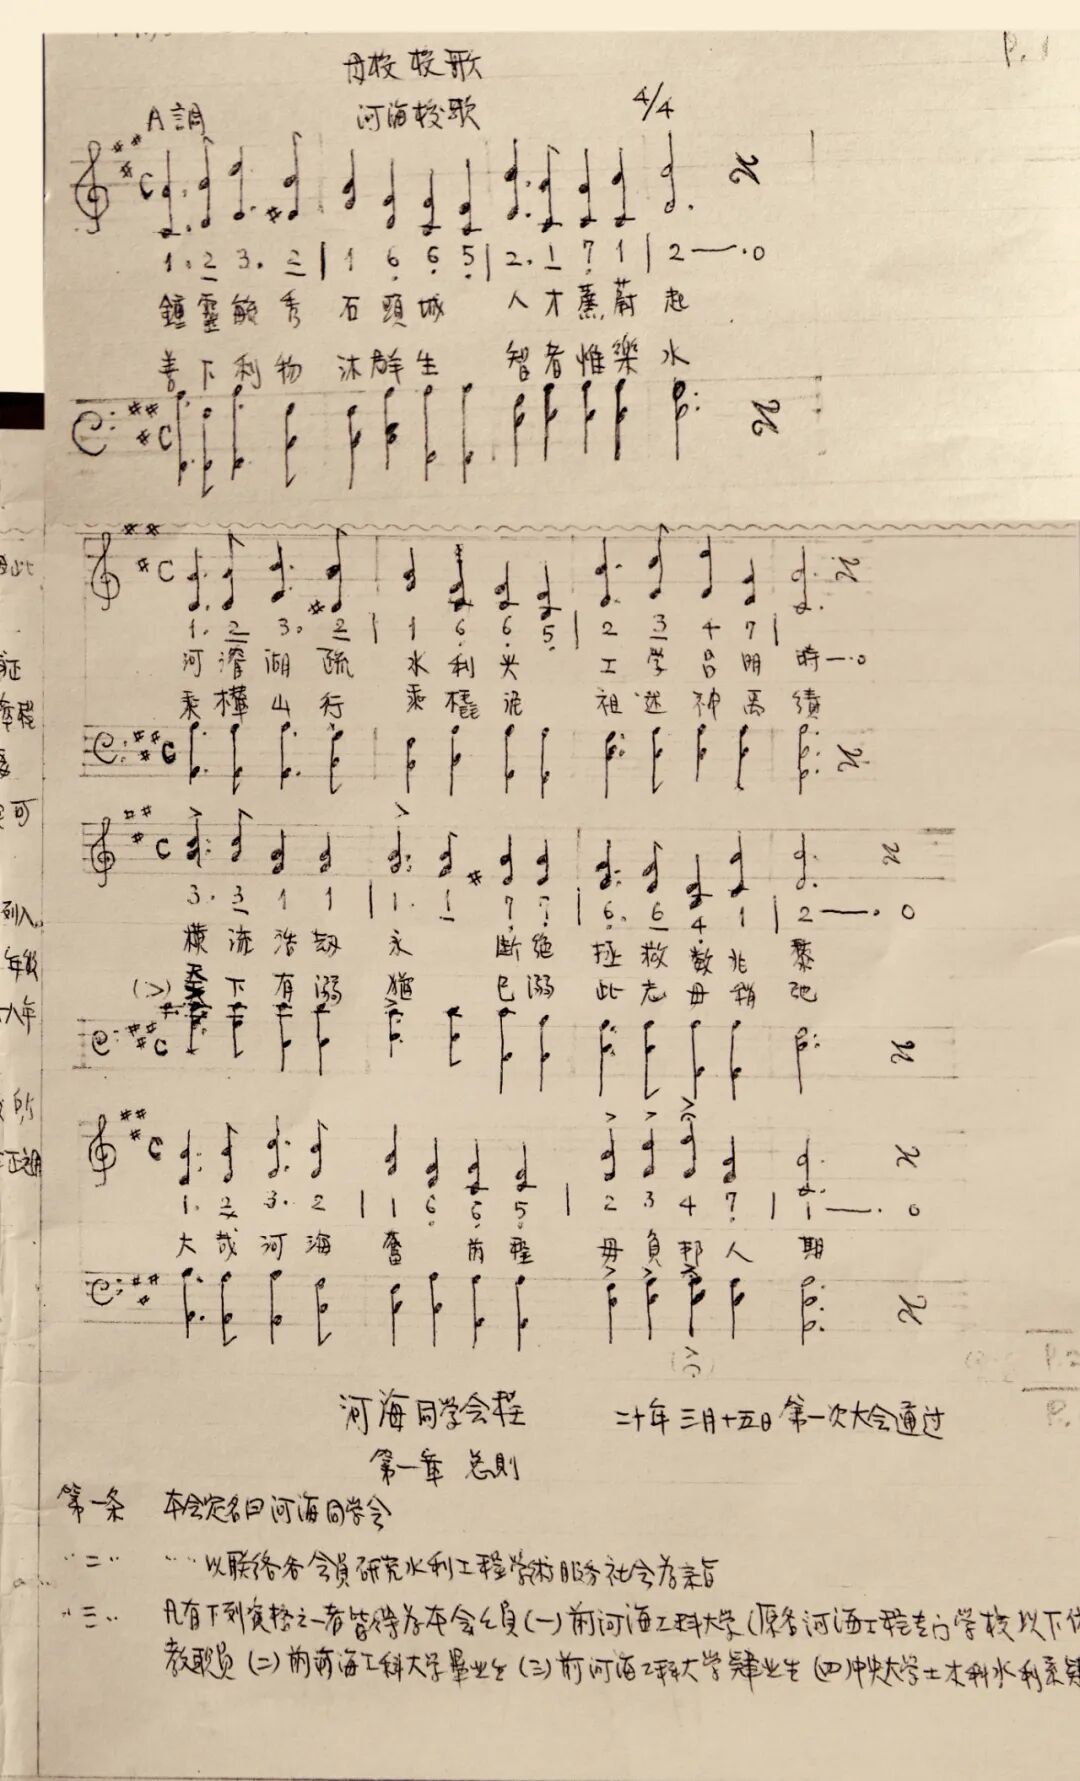 P.1
母校校歌
A調 河海校歌 4/4
1. 2 3. 2 | 1 6 6 5 | 2. 1 7 1 | 2 —. 0
鍾靈毓秀 石頭城 人才薰蔚起
善下利物 沐群生 智者惟樂水
1. 2 3. 2 | 1 6 6 5 | 2 3 4 7 |
河濬湖疏 水利興 工学昌明時 —. 0
乘樺山行 乘橇泥 祖述神禹績
3. 3 1 1 | 1. 1 7 7 | 6. 6 4 1 | 2 —. 0
橫流浩劫 永 断绝 拯救数兆黎
(>) 下有溺 猶 已溺 此志毋稍弛
1. 2 3. 2 | 1 6 6 5 | 2 3 4 7 | 1 —. 0
大哉河海 奮 前程 毋負邦人期
河海同学会程 二十年三月十五日第一次大会通过
第一章 总則
第一条 本会定名曰河海同学会
〃二〃 〃〃以联络各会員研究水利工程学術服务社会为宗旨
〃三〃 凡有下列資格之一者皆得为本会会員(一)前河海工科大学(原名河海工程专门学校以下
教职員(二)前河海工科大学畢业生(三)前河海工科大学肄业生(四)中央大学土木科水利系肄